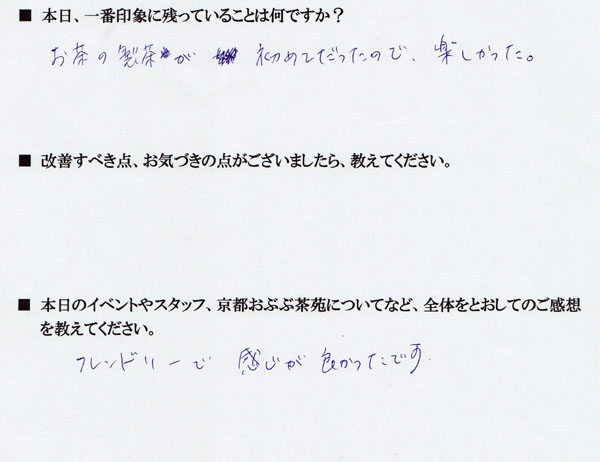 ■ 本日、一番印象に残っていることは何ですか？
お茶の製茶が 初めてだったので、楽しかった。
■ 改善すべき点、お気づきの点がございましたら、教えてください。
■ 本日のイベントやスタッフ、京都おぶぶ茶苑についてなど、全体をとおしてのご感想
を教えてください。
フレンドリーで 感じが 良かったです.